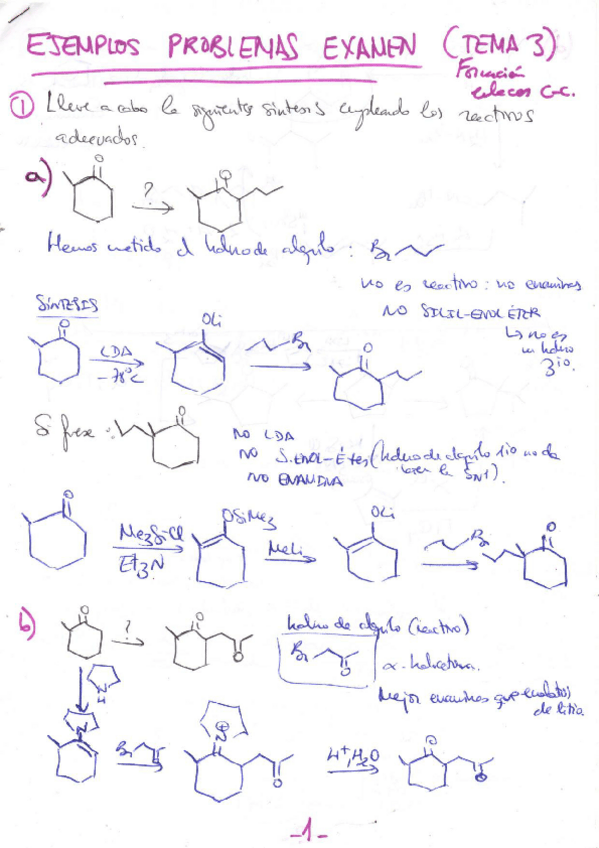 EJEMPLOS PROBLEMAS EXAMEN (TEMA 3)
Formación
enlaces C-C.
① Lleve a cabo la siguientes síntesis empleando los reactivos
adecuados.
a)
O
?
O
Hemos metido el haluro de alquilo : Br
no es reactivo : no enaminas
NO SILIL-ENOL ÉTER
↳ no es
un haluro
3io.
SÍNTESIS
O
LDA
-78ºC
OLi
Br
O
Si fuese :
O
NO LDA
NO S.ENOL-Éter (haluro de alquilo 1io no da
bien la SN1).
NO ENAMINA
O
Me3Si-Cl
Et3N
OSiMe3
MeLi
OLi
Br
O
b)
O
?
O
O
haluro de alquilo (reactivo)
Br
O
α-halocetona.
Mejor enaminas que enolatos
de litio.
N
H
N
Br
O
N
⊕
O
H+, H2O
O
O
-1-